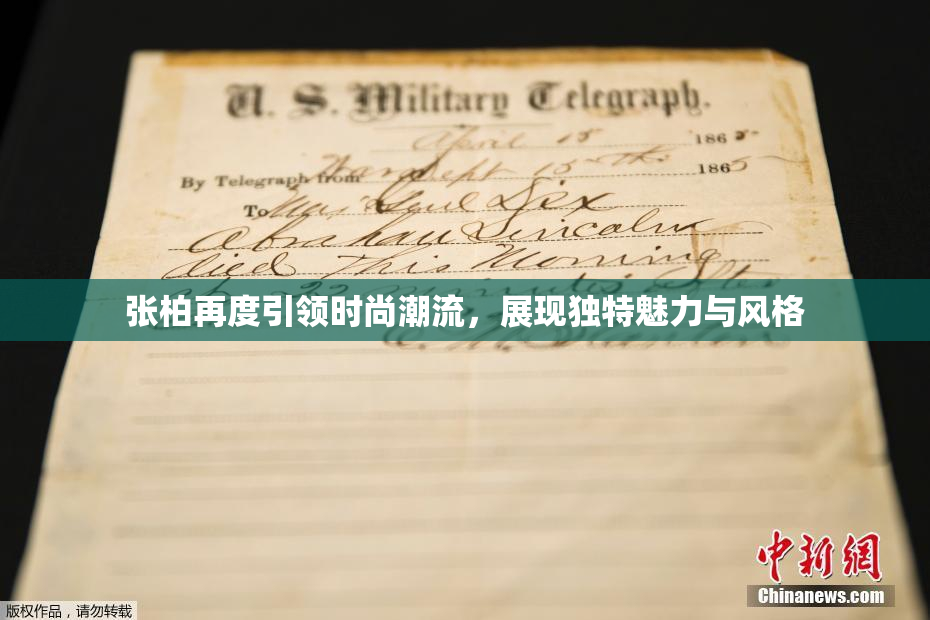 U. S. Military Telegraph.
April 15 1865
By Telegraph from War Dept 15th 1865
To Maj Genl Dix
Abraham Lincoln
died This Morning
at 22 minutes after
张柏再度引领时尚潮流，展现独特魅力与风格
E. M. Stanton
中新网
Chinanews.com
版权作品，请勿转载